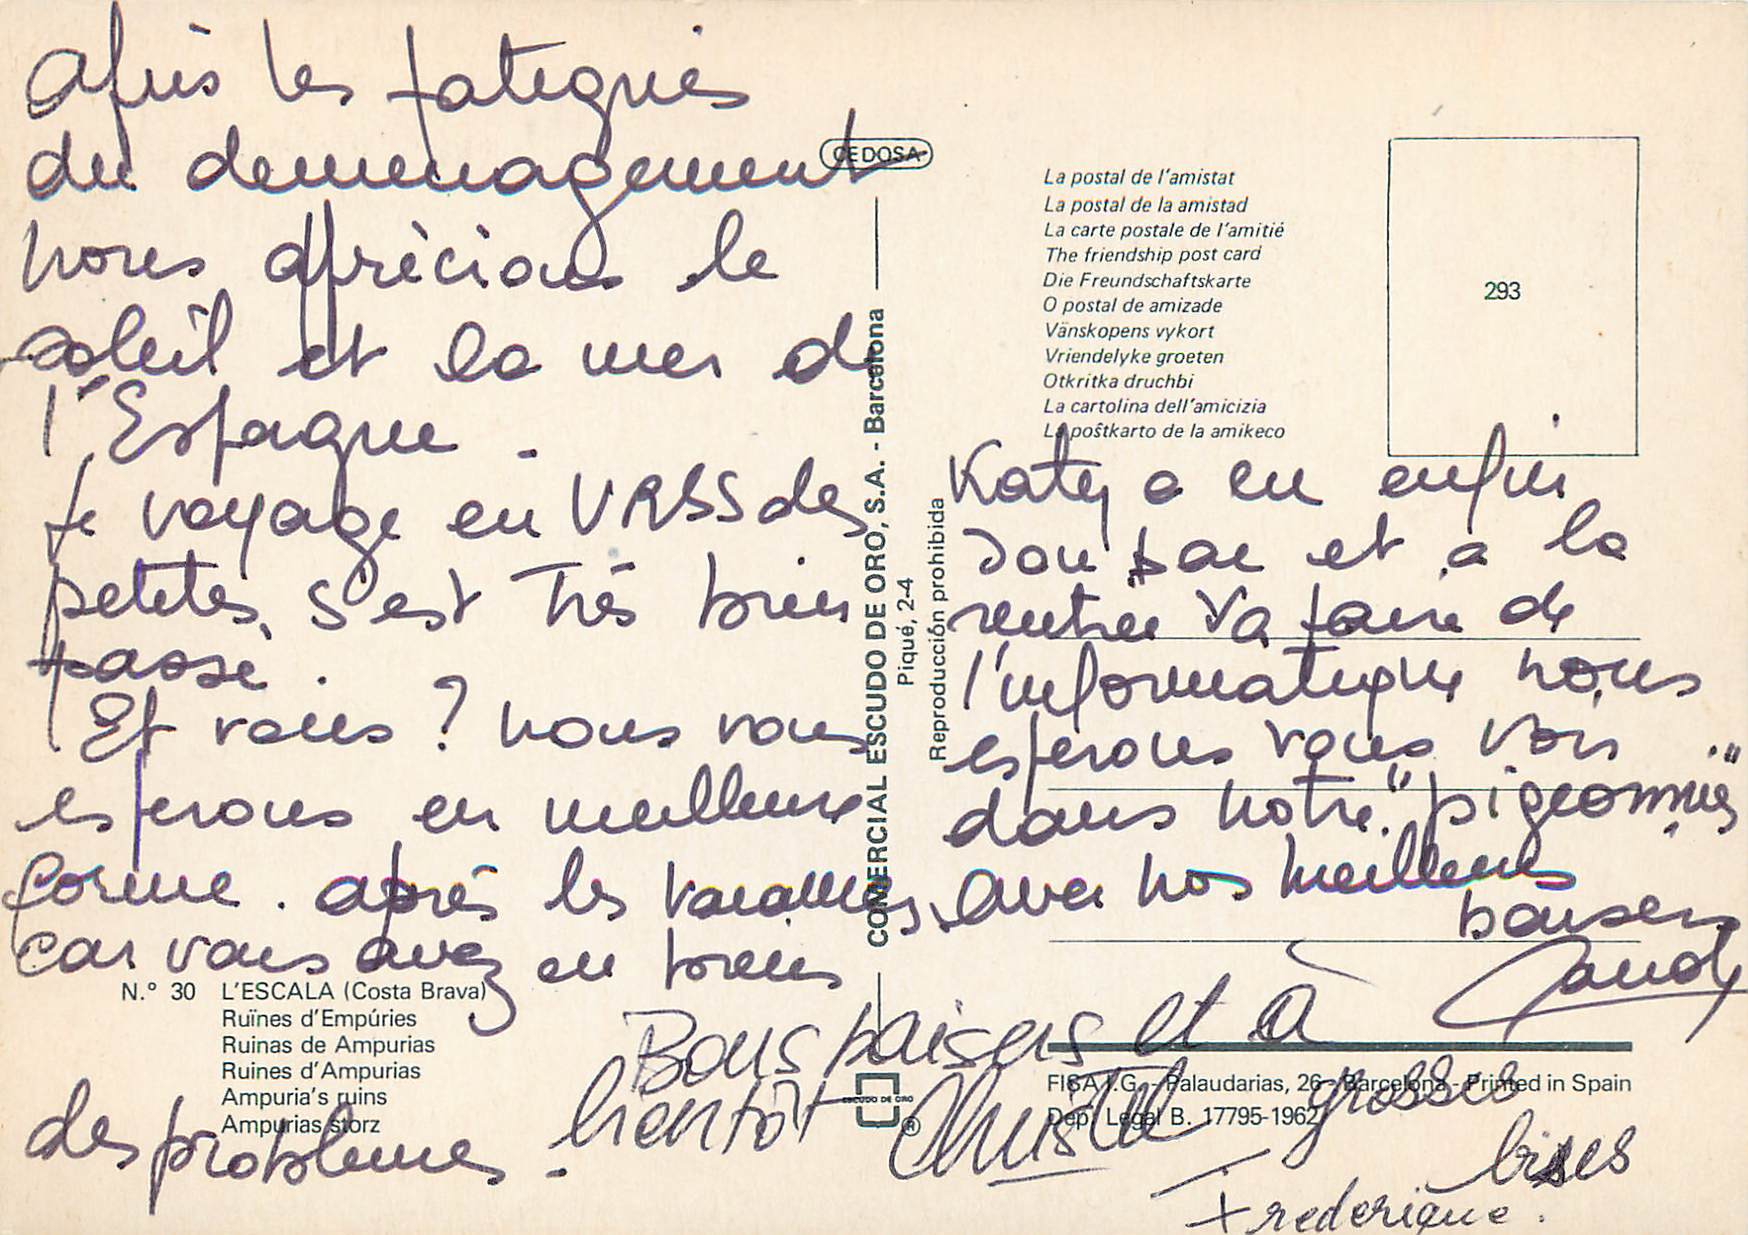 Après les fatigues
du demenagement
nous apprécions le
soleil et la mer de
l'Espagne.
Le voyage en URSS des
petites, s'est très bien
passé.
Et vous? nous vous
esperons en meilleure
forme. après les vacances,
car vous avez eu bien
des problemes.
Katy a eu enfin
son bac et a la
rentrée va faire de
l'informatique nous
esperons vous voir
dans notre "pigeonnier"
avec nos meilleurs
baisers
Bons baisers et à
bientôt Christel
grosses
bises
Frederique.
CEDOSA
COMERCIAL ESCUDO DE ORO, S.A. - Barcelona
Piqué, 2-4
Reproducción prohibida
ESCUDO DE ORO
®
La postal de l'amistat
La postal de la amistad
La carte postale de l'amitié
The friendship post card
Die Freundschaftskarte
O postal de amizade
Vänskopens vykort
Vriendelyke groeten
Otkritka druchbi
La cartolina dell'amicizia
La poŝtkarto de la amikeco
293
N.º 30 L'ESCALA (Costa Brava)
Ruïnes d'Empúries
Ruinas de Ampurias
Ruines d'Ampurias
Ampuria's ruins
Ampurias storz
FISA I.G. - Palaudarias, 26 - Barcelona - Printed in Spain
Dep. Legal B. 17795-1962